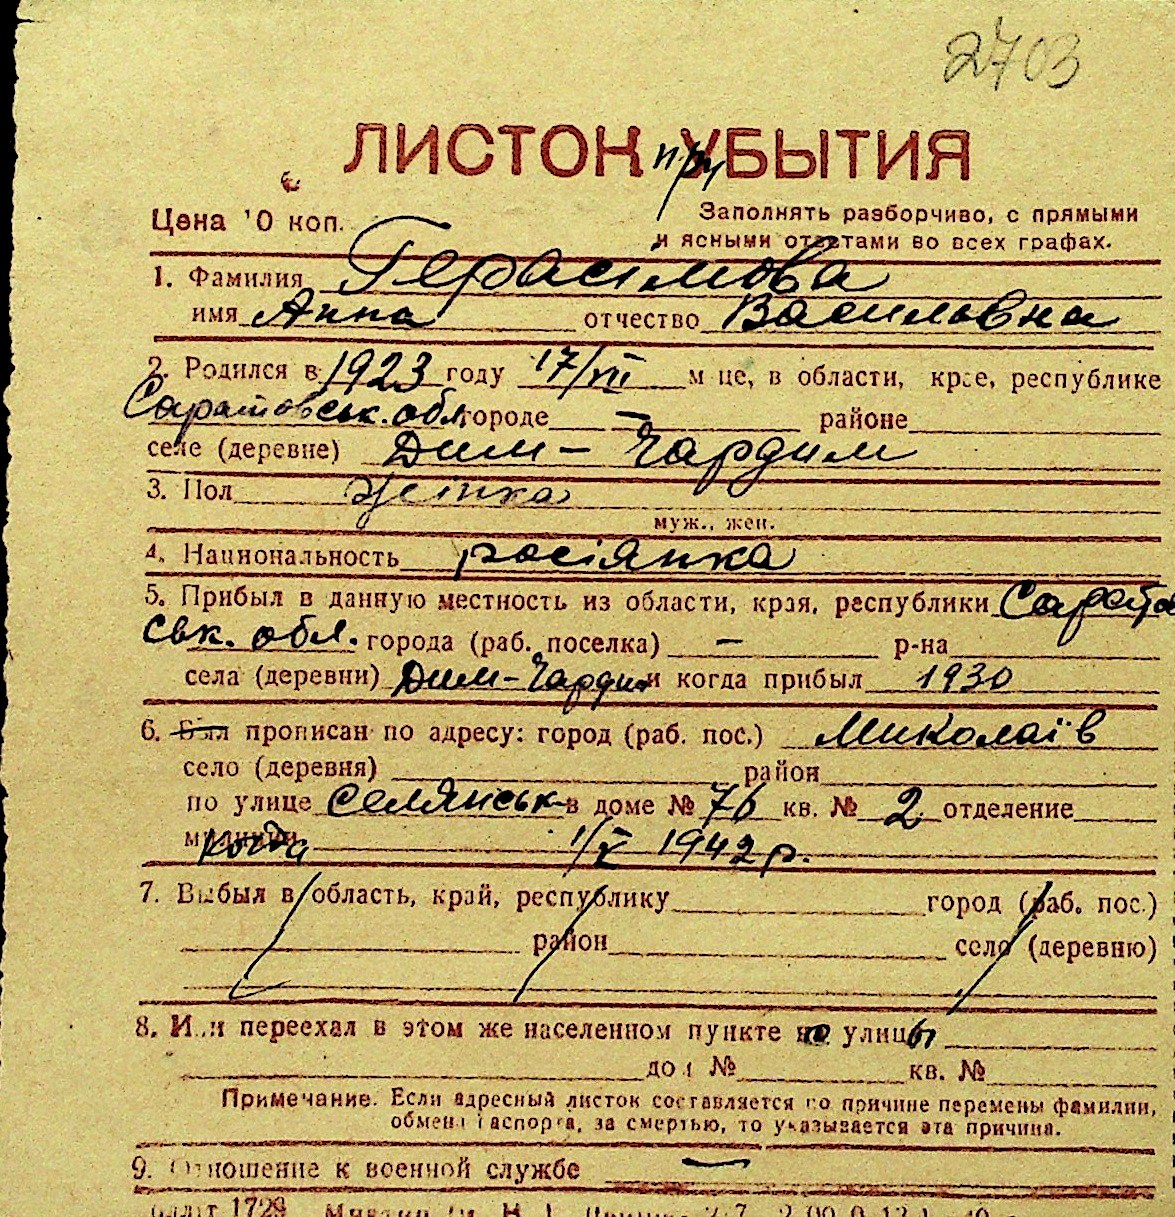 2703
ЛИСТОК УБЫТИЯ
при
Цена 10 коп.
Заполнять разборчиво, с прямыми
и ясными ответами во всех графах.
1. Фамилия Герасімова
имя Анна отчество Василовна
2. Родился в 1923 году 17/VII м-це, в области, крае, республике
Саратовськ. обл. городе — районе
селе (деревне) Дим - Чардим
3. Пол жінка
муж., жен.
4. Национальность росіянка
5. Прибыл в данную местность из области, края, республики Сарата
ськ. обл. города (раб. поселка) — р-на
села (деревни) Дим-Чардим и когда прибыл 1930
6. Был прописан по адресу: город (раб. пос.) Миколаїв
село (деревня) район
по улице Селянськ в доме № 76 кв. № 2 отделение
милиции когда 1/X 1942 р.
7. Выбыл в область, край, республику город (раб. пос.)
район село (деревню)
8. Или переехал в этом же населенном пункте по улицы
дом № кв. №
Примечание. Если адресный листок составляется по причине перемены фамилии,
обмена паспорта, за смертью, то указывается эта причина.
9. Отношение к военной службе —
1729